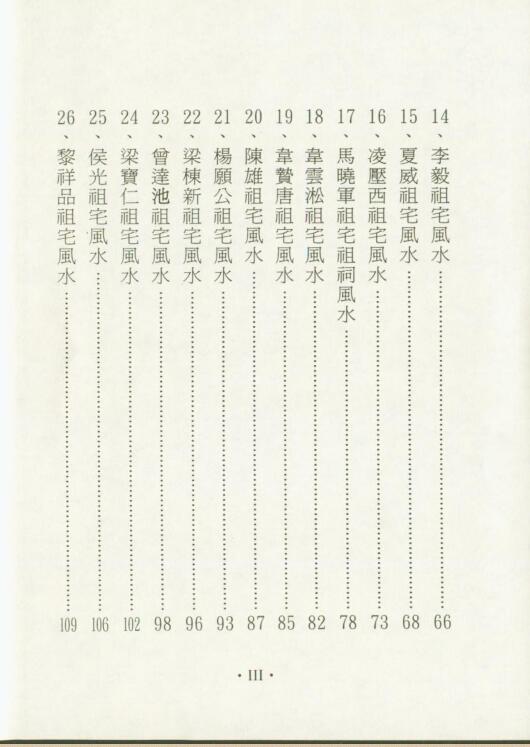 14、李毅祖宅風水……66
15、夏威祖宅風水……68
16、凌壓西祖宅風水……73
17、馬曉軍祖宅祖祠風水……78
18、韋雲淞祖宅風水……82
19、韋贄唐祖宅風水……85
20、陳雄祖宅風水……87
21、楊願公祖宅風水……93
22、梁棟新祖宅風水……96
23、曾達池祖宅風水……98
24、梁寶仁祖宅風水……102
25、侯光祖宅風水……106
26、黎祥品祖宅風水……109
·III·